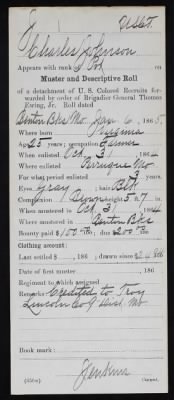 J Detch.
Charles Johnson
Appears with rank of Pvt on
Muster and Descriptive Roll
of a detachment of U. S. Colored Recruits for-
warded by order of Brigadier General Thomas
Ewing, Jr. Roll dated
Benton Bks Mo. Jan 6, 1865.
Where born Virginia
Age 23 years; occupation Farmer
When enlisted Oct. 31, 1864
Where enlisted Mo
For what period enlisted 3 years.
Eyes Gray; hair Blk
Complexion Brown; 5 ft. 7 in.
When mustered in Oct. 31, 1864
Where mustered in Benton Bks
Bounty paid $100; due $200
Clothing account:
Last settled , 186 ; drawn since $
Date of first muster , 186
Regiment to which assigned
Remarks: Credited to Troy
Lincoln Co 9 Dist. Mo
Book mark:
Jenkins
(356e) Copyist.